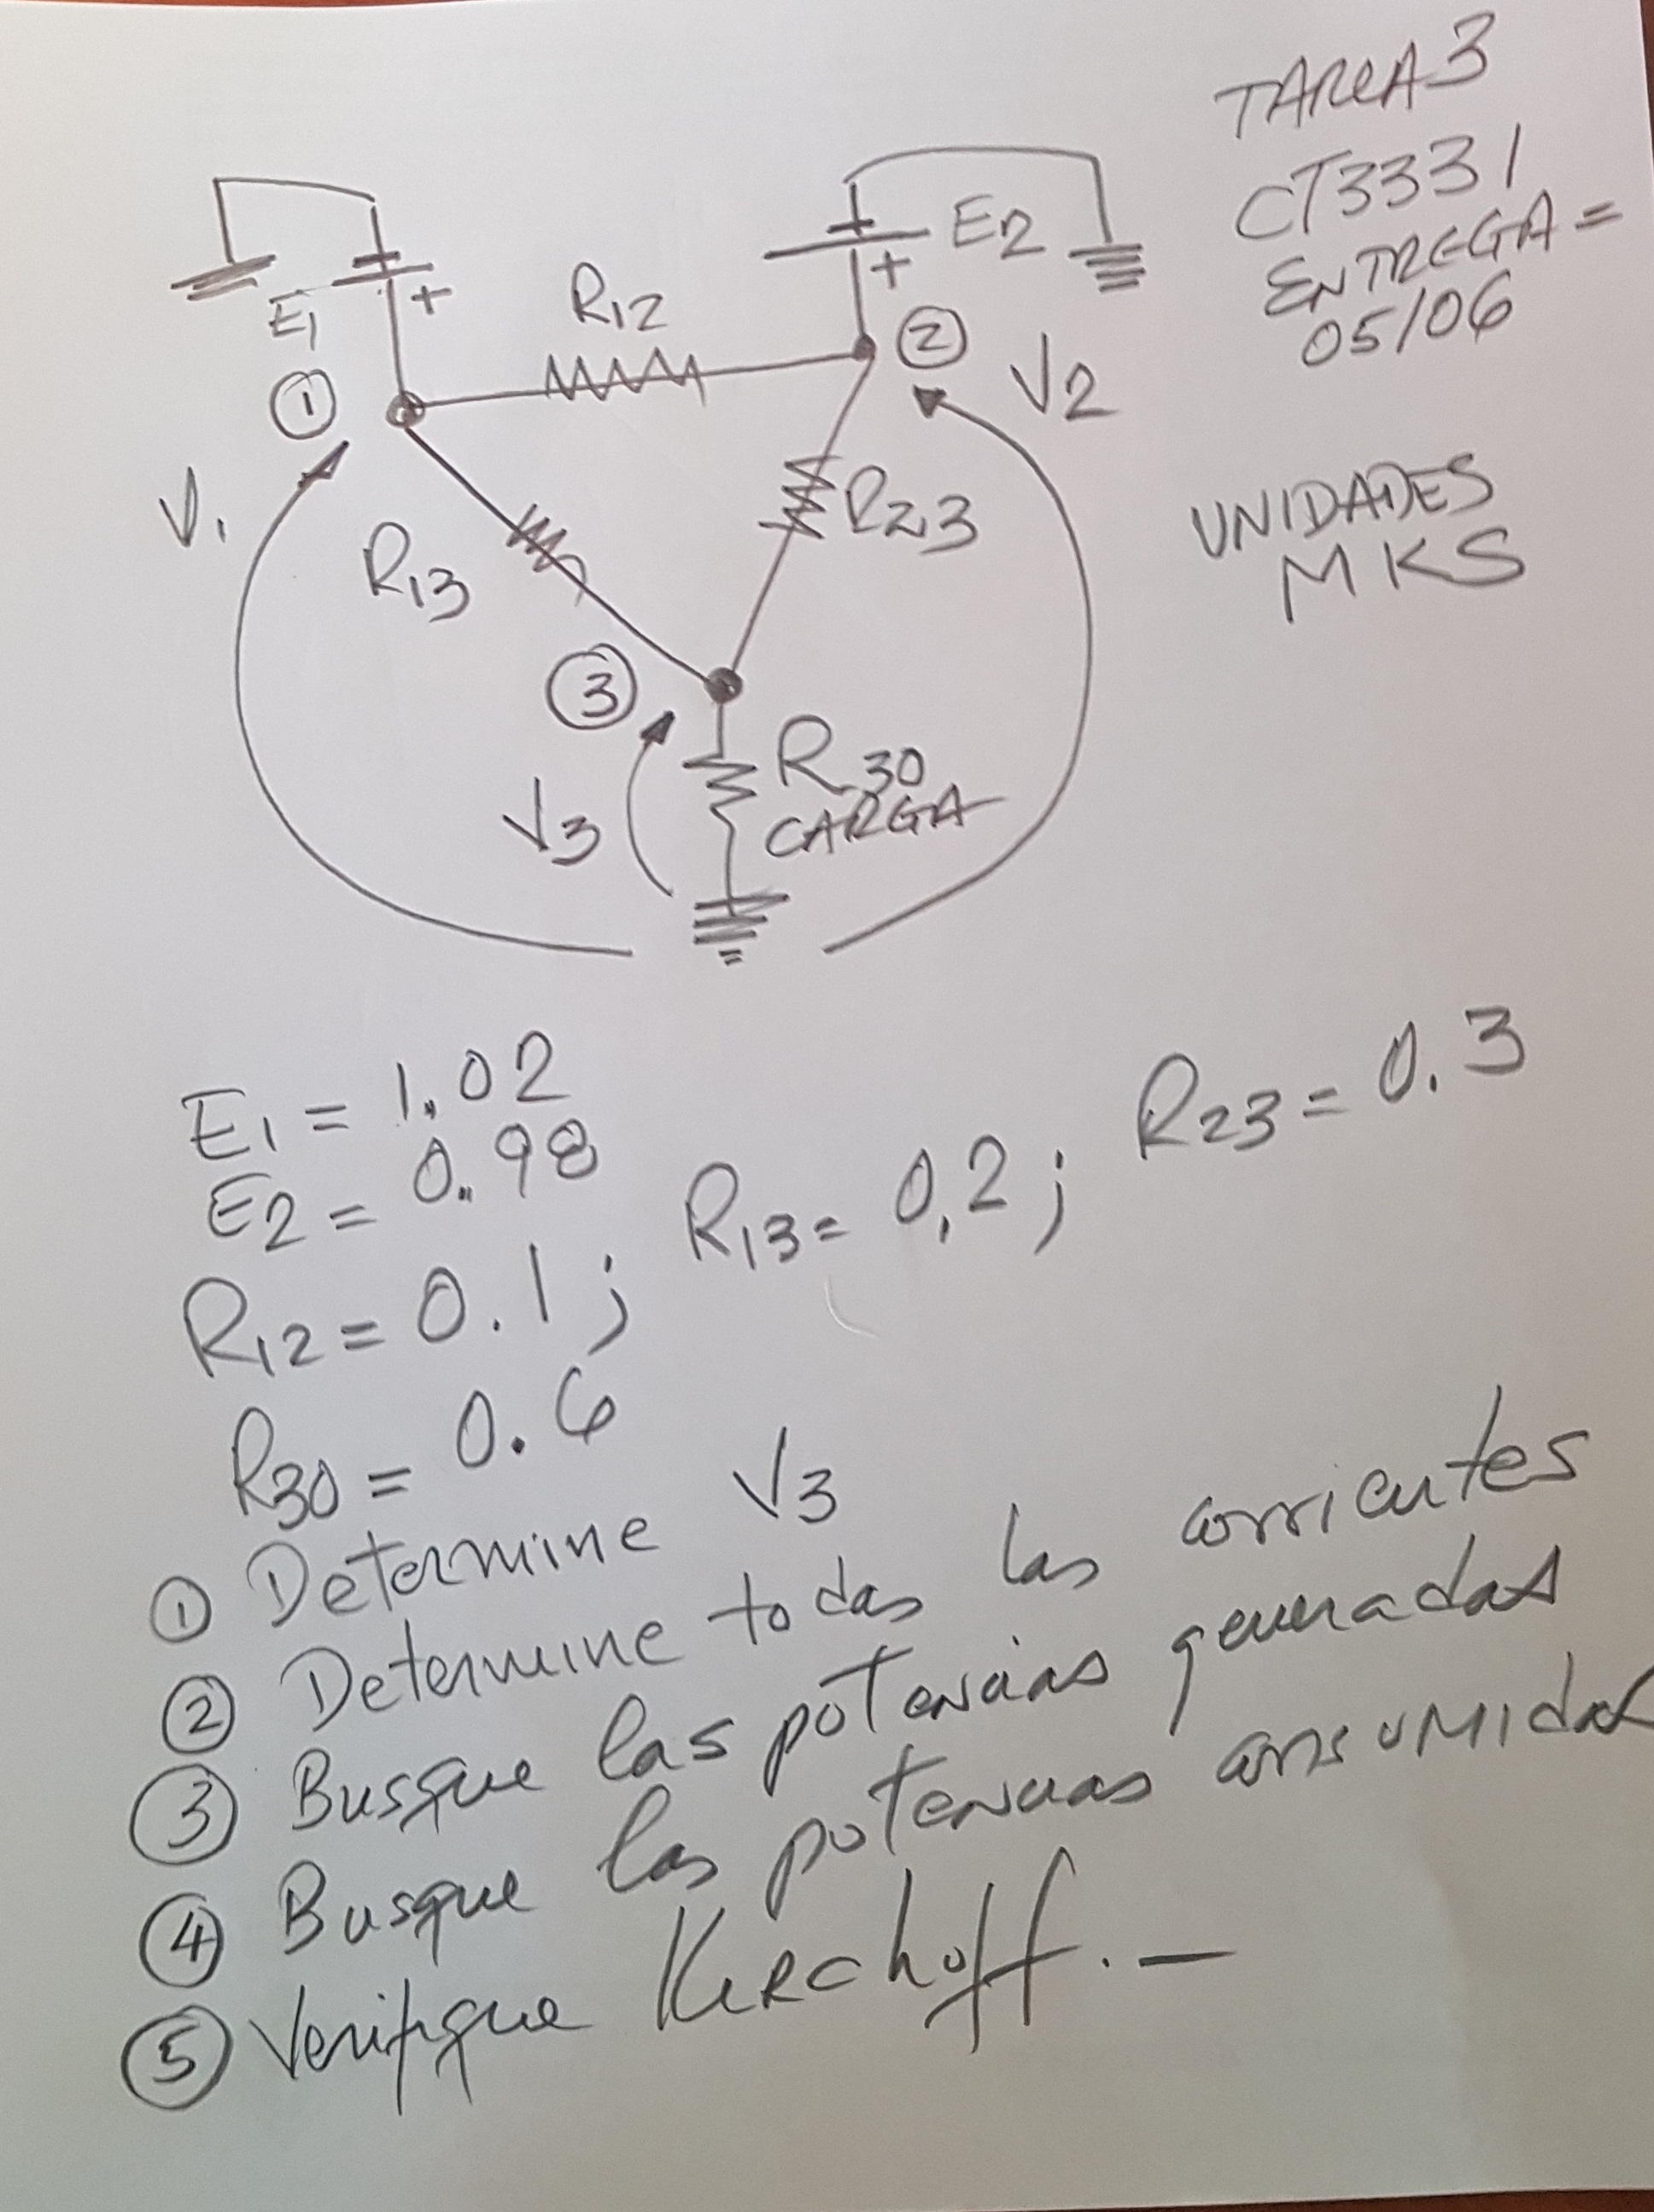 TAREA 3
CT3331
ENTREGA =
05/06
UNIDADES
MKS
E1
+
R12
E2
+
1
2
V1
V2
R13
R23
3
V3
R30
CARGA
E1 = 1.02
E2 = 0.98
R12 = 0.1 ; R13 = 0,2 ; R23 = 0.3
R30 = 0.6
1 Determine V3
2 Determine todas las corrientes
3 Busque las potencias generadas
4 Busque las potencias consumidas
5 Verifique Kirchoff.-